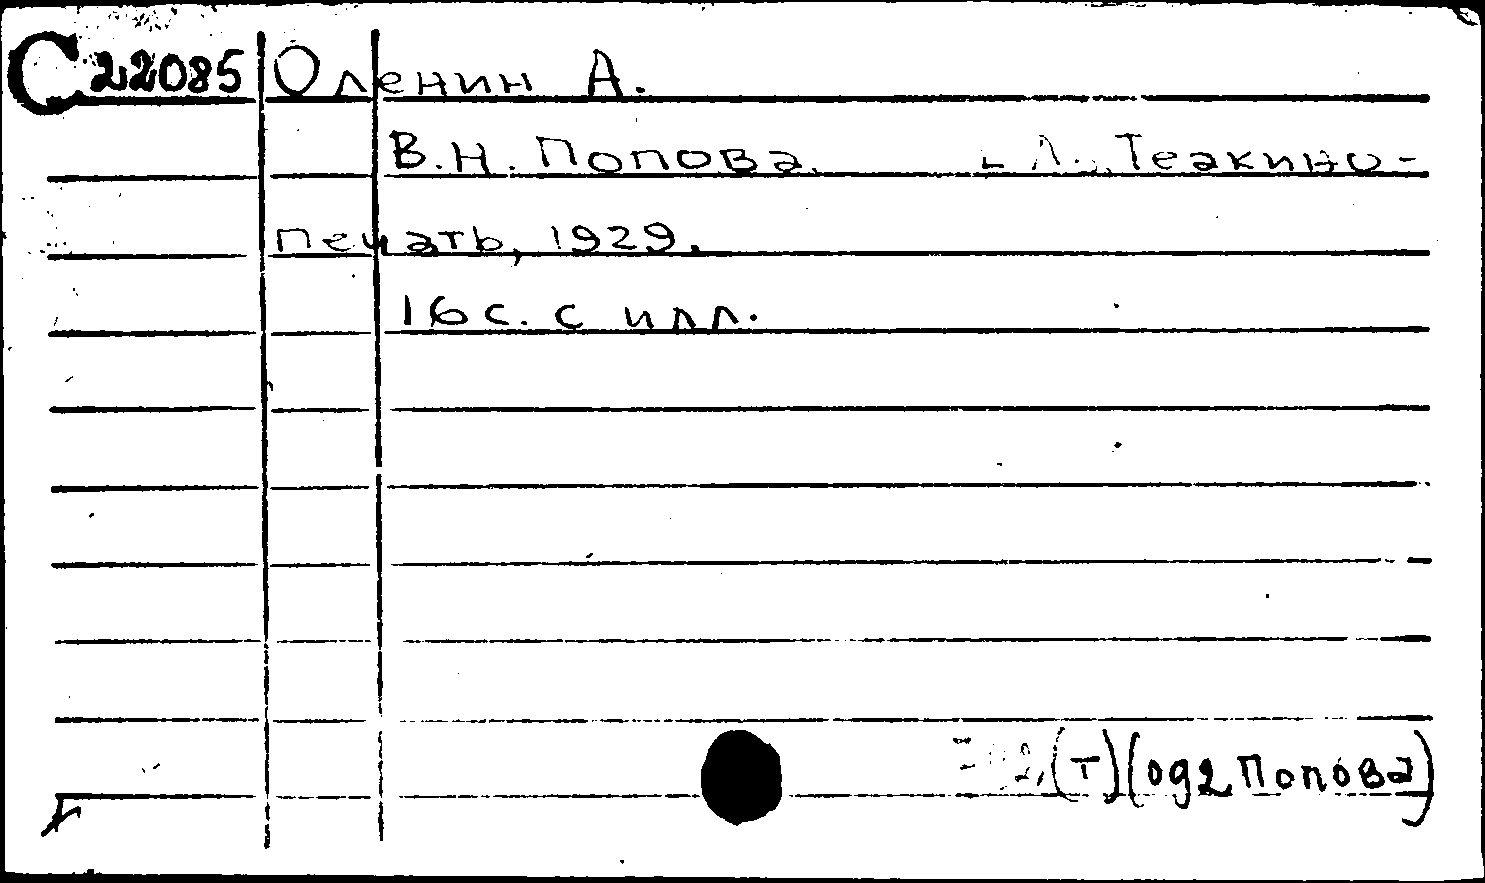 С22085 Оленин А.
В.Н. Попова. Л., Теакино-
печать, 1929.
16 с. с илл.
(т) (092 Попова)